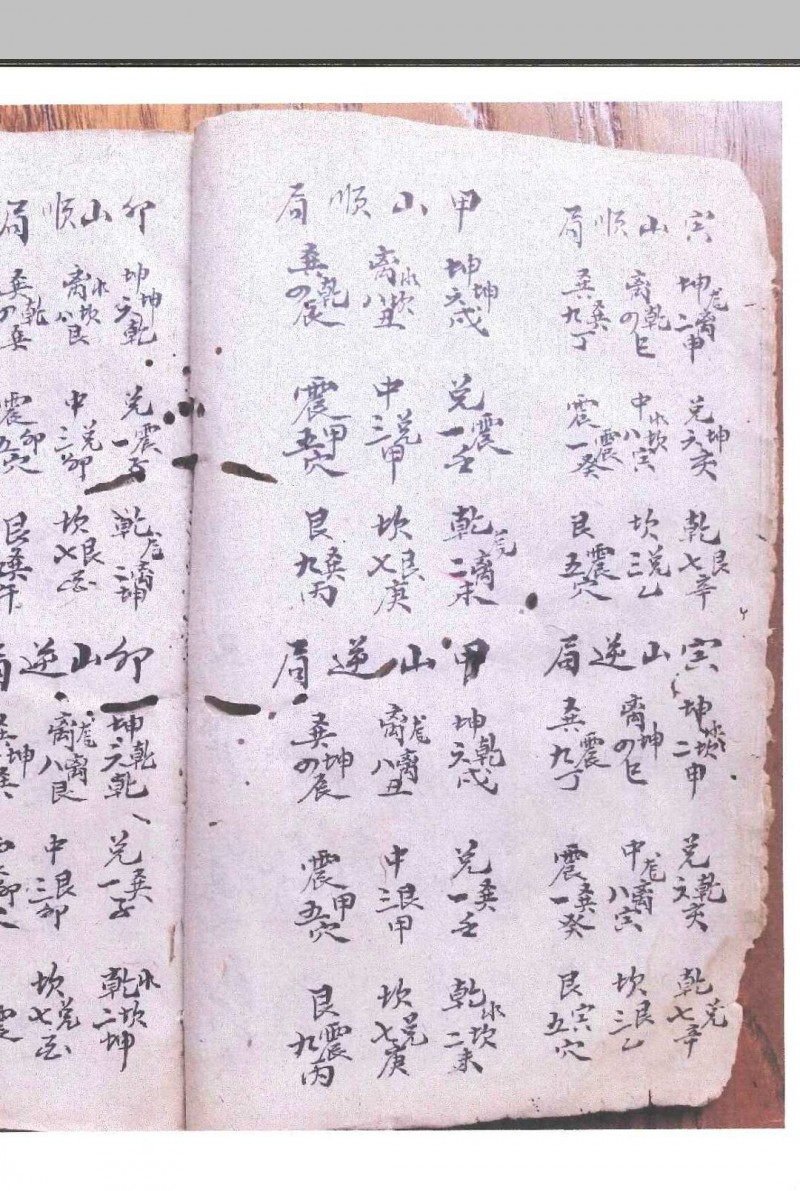 寅山順局
坤離二申 兑坤六亥 乾艮七辛
离乾四巳 中水坎八寅 坎兑三乙
巽巽九丁 震震一癸 艮震五穴
寅山逆局
坤水坎二申 兑乾六亥 乾兑七辛
离坤四巳 中離八寅 坎艮三乙
巽震九丁 震巽一癸 艮寅五穴
甲山順局
坤坤六戌 兑震一壬 乾離二未
离水坎八丑 中兑三甲 坎艮七庚
巽乾四辰 震甲五穴 艮巽九丙
甲山逆局
坤乾六戌 兑巽一壬 乾水坎二未
离離八丑 中艮三甲 坎兑七庚
巽坤四辰 震甲五穴 艮震九丙
卯山順局
坤坤六乾 兑震一子 乾離二坤
离水坎八艮 中兑三卯 坎艮七
巽乾四巽 震卯五穴 艮巽午
卯山逆局
坤乾六乾 兑巽一子 乾水坎二坤
离離八艮 中艮三卯 坎兑七
坤巽 卯